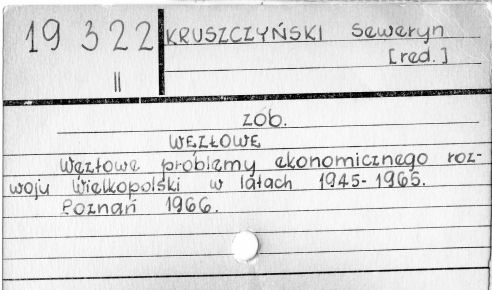 19 322
II
KRUSZCZYŃSKI Seweryn
[red.]
zob.
WĘZŁOWE
Węzłowe problemy ekonomicznego roz-
woju Wielkopolski w latach 1945-1965.
Poznań 1966.